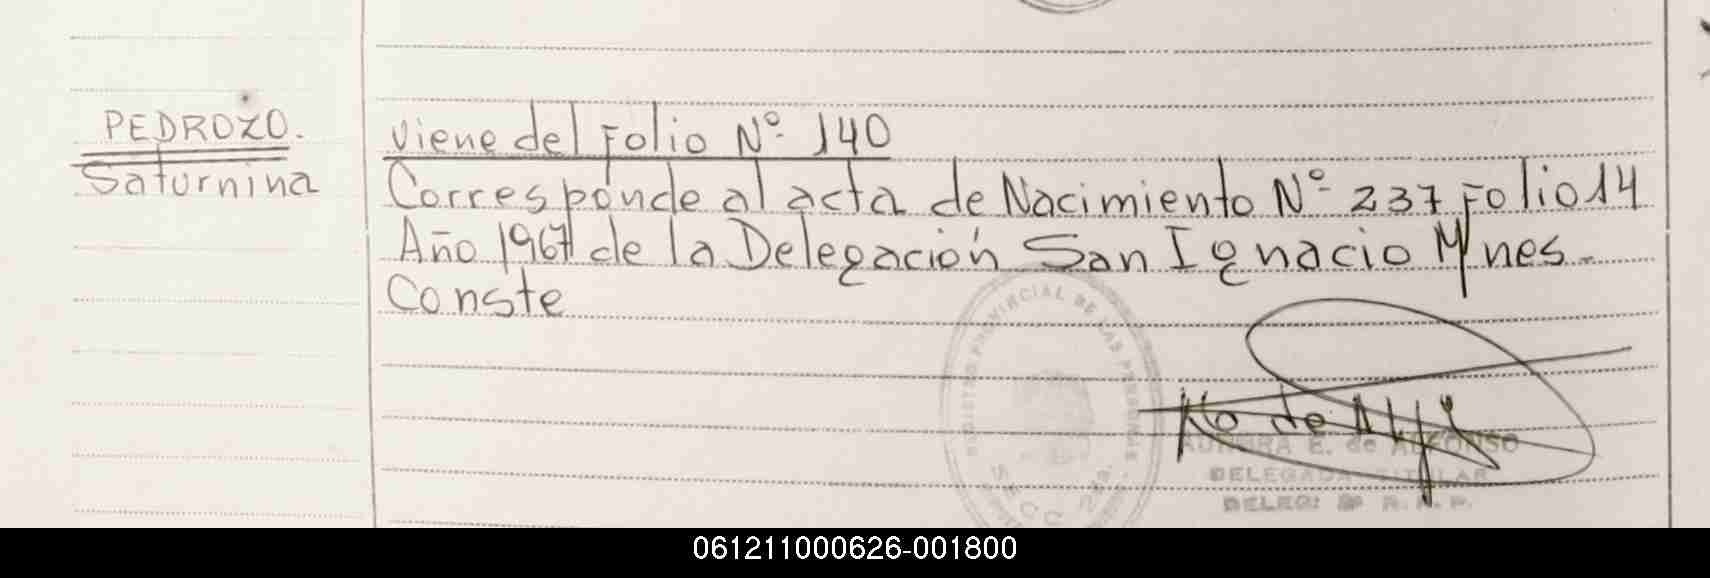 PEDROZO.
Saturnina
viene del Folio Nº 140
Corresponde al acta de Nacimiento Nº 237 Folio 14
Año 1967 de la Delegación San Ignacio Mnes.
Conste
REGISTRO PROVINCIAL DE LAS PERSONAS
SECC
E. de ALFONSO
DELEGADA TITULAR
DELEG: R. P.
061211000626-001800